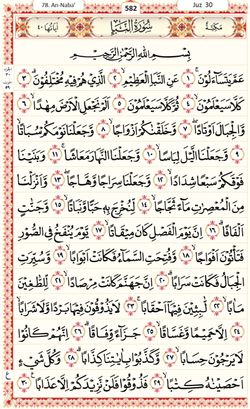 78. An-Naba'
582
Juz 30
مَكِّيَّةٌ
سُوْرَةُ النَّبَاِ
اٰيَاتُهَا ٤٠
بِسْمِ اللّٰهِ الرَّحْمٰنِ الرَّحِيْمِ
عَمَّ يَتَسَآءَلُوْنَ ١ عَنِ النَّبَاِ الْعَظِيْمِ ٢ الَّذِيْ هُمْ فِيْهِ مُخْتَلِفُوْنَ ٣
كَلَّا سَيَعْلَمُوْنَ ٤ ثُمَّ كَلَّا سَيَعْلَمُوْنَ ٥ اَلَمْ نَجْعَلِ الْاَرْضَ مِهٰدًا ٦
وَّالْجِبَالَ اَوْتَادًا ٧ وَّخَلَقْنٰكُمْ اَزْوَاجًا ٨ وَّجَعَلْنَا نَوْمَكُمْ سُبَاتًا
٩ وَّجَعَلْنَا الَّيْلَ لِبَاسًا ١٠ وَّجَعَلْنَا النَّهَارَ مَعَاشًا ١١ وَبَنَيْنَا
فَوْقَكُمْ سَبْعًا شِدَادًا ١٢ وَّجَعَلْنَا سِرَاجًا وَّهَّاجًا ١٣ وَّاَنْزَلْنَا
مِنَ الْمُعْصِرٰتِ مَآءً ثَجَّاجًا ١٤ لِّنُخْرِجَ بِهٖ حَبًّا وَّنَبَاتًا ١٥ وَّجَنّٰتٍ
اَلْفَافًا ١٦ اِنَّ يَوْمَ الْفَصْلِ كَانَ مِيْقَاتًا ١٧ يَّوْمَ يُنْفَخُ فِى الصُّوْرِ
فَتَاْتُوْنَ اَفْوَاجًا ١٨ وَّفُتِحَتِ السَّمَآءُ فَكَانَتْ اَبْوَابًا ١٩ وَّسُيِّرَتِ
الْجِبَالُ فَكَانَتْ سَرَابًا ٢٠ اِنَّ جَهَنَّمَ كَانَتْ مِرْصَادًا ٢١ لِّلطّٰغِيْنَ
مَاٰبًا ٢٢ لّٰبِثِيْنَ فِيْهَآ اَحْقَابًا ٢٣ لَا يَذُوْقُوْنَ فِيْهَا بَرْدًا وَّلَا شَرَابًا
٢٤ اِلَّا حَمِيْمًا وَّغَسَّاقًا ٢٥ جَزَآءً وِّفَاقًا ٢٦ اِنَّهُمْ كَانُوْا
لَا يَرْجُوْنَ حِسَابًا ٢٧ وَّكَذَّبُوْا بِاٰيٰتِنَا كِذَّابًا ٢٨ وَكُلَّ شَيْءٍ
اَحْصَيْنٰهُ كِتٰبًا ٢٩ فَذُوْقُوْا فَلَنْ نَّزِيْدَكُمْ اِلَّا عَذَابًا ٣٠